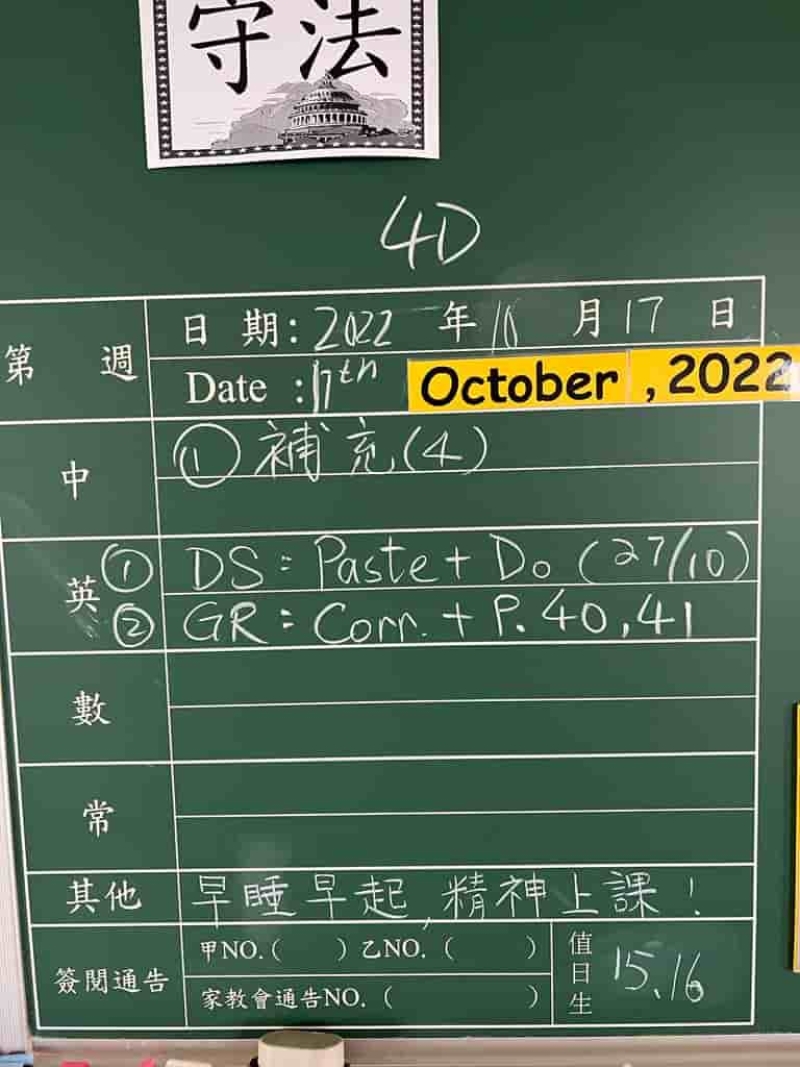 守法
4D
第 週
日 期: 2022 年 10 月 17 日
Date : 17th October , 2022
中
① 補充(4)
英
① DS: Paste + Do (27/10)
② GR: Corr. + P. 40, 41
數
常
其他 早睡早起,精神上課!
簽閱通告
甲NO.( ) 乙NO. ( )
家教會通告NO. ( )
值日生 15、16